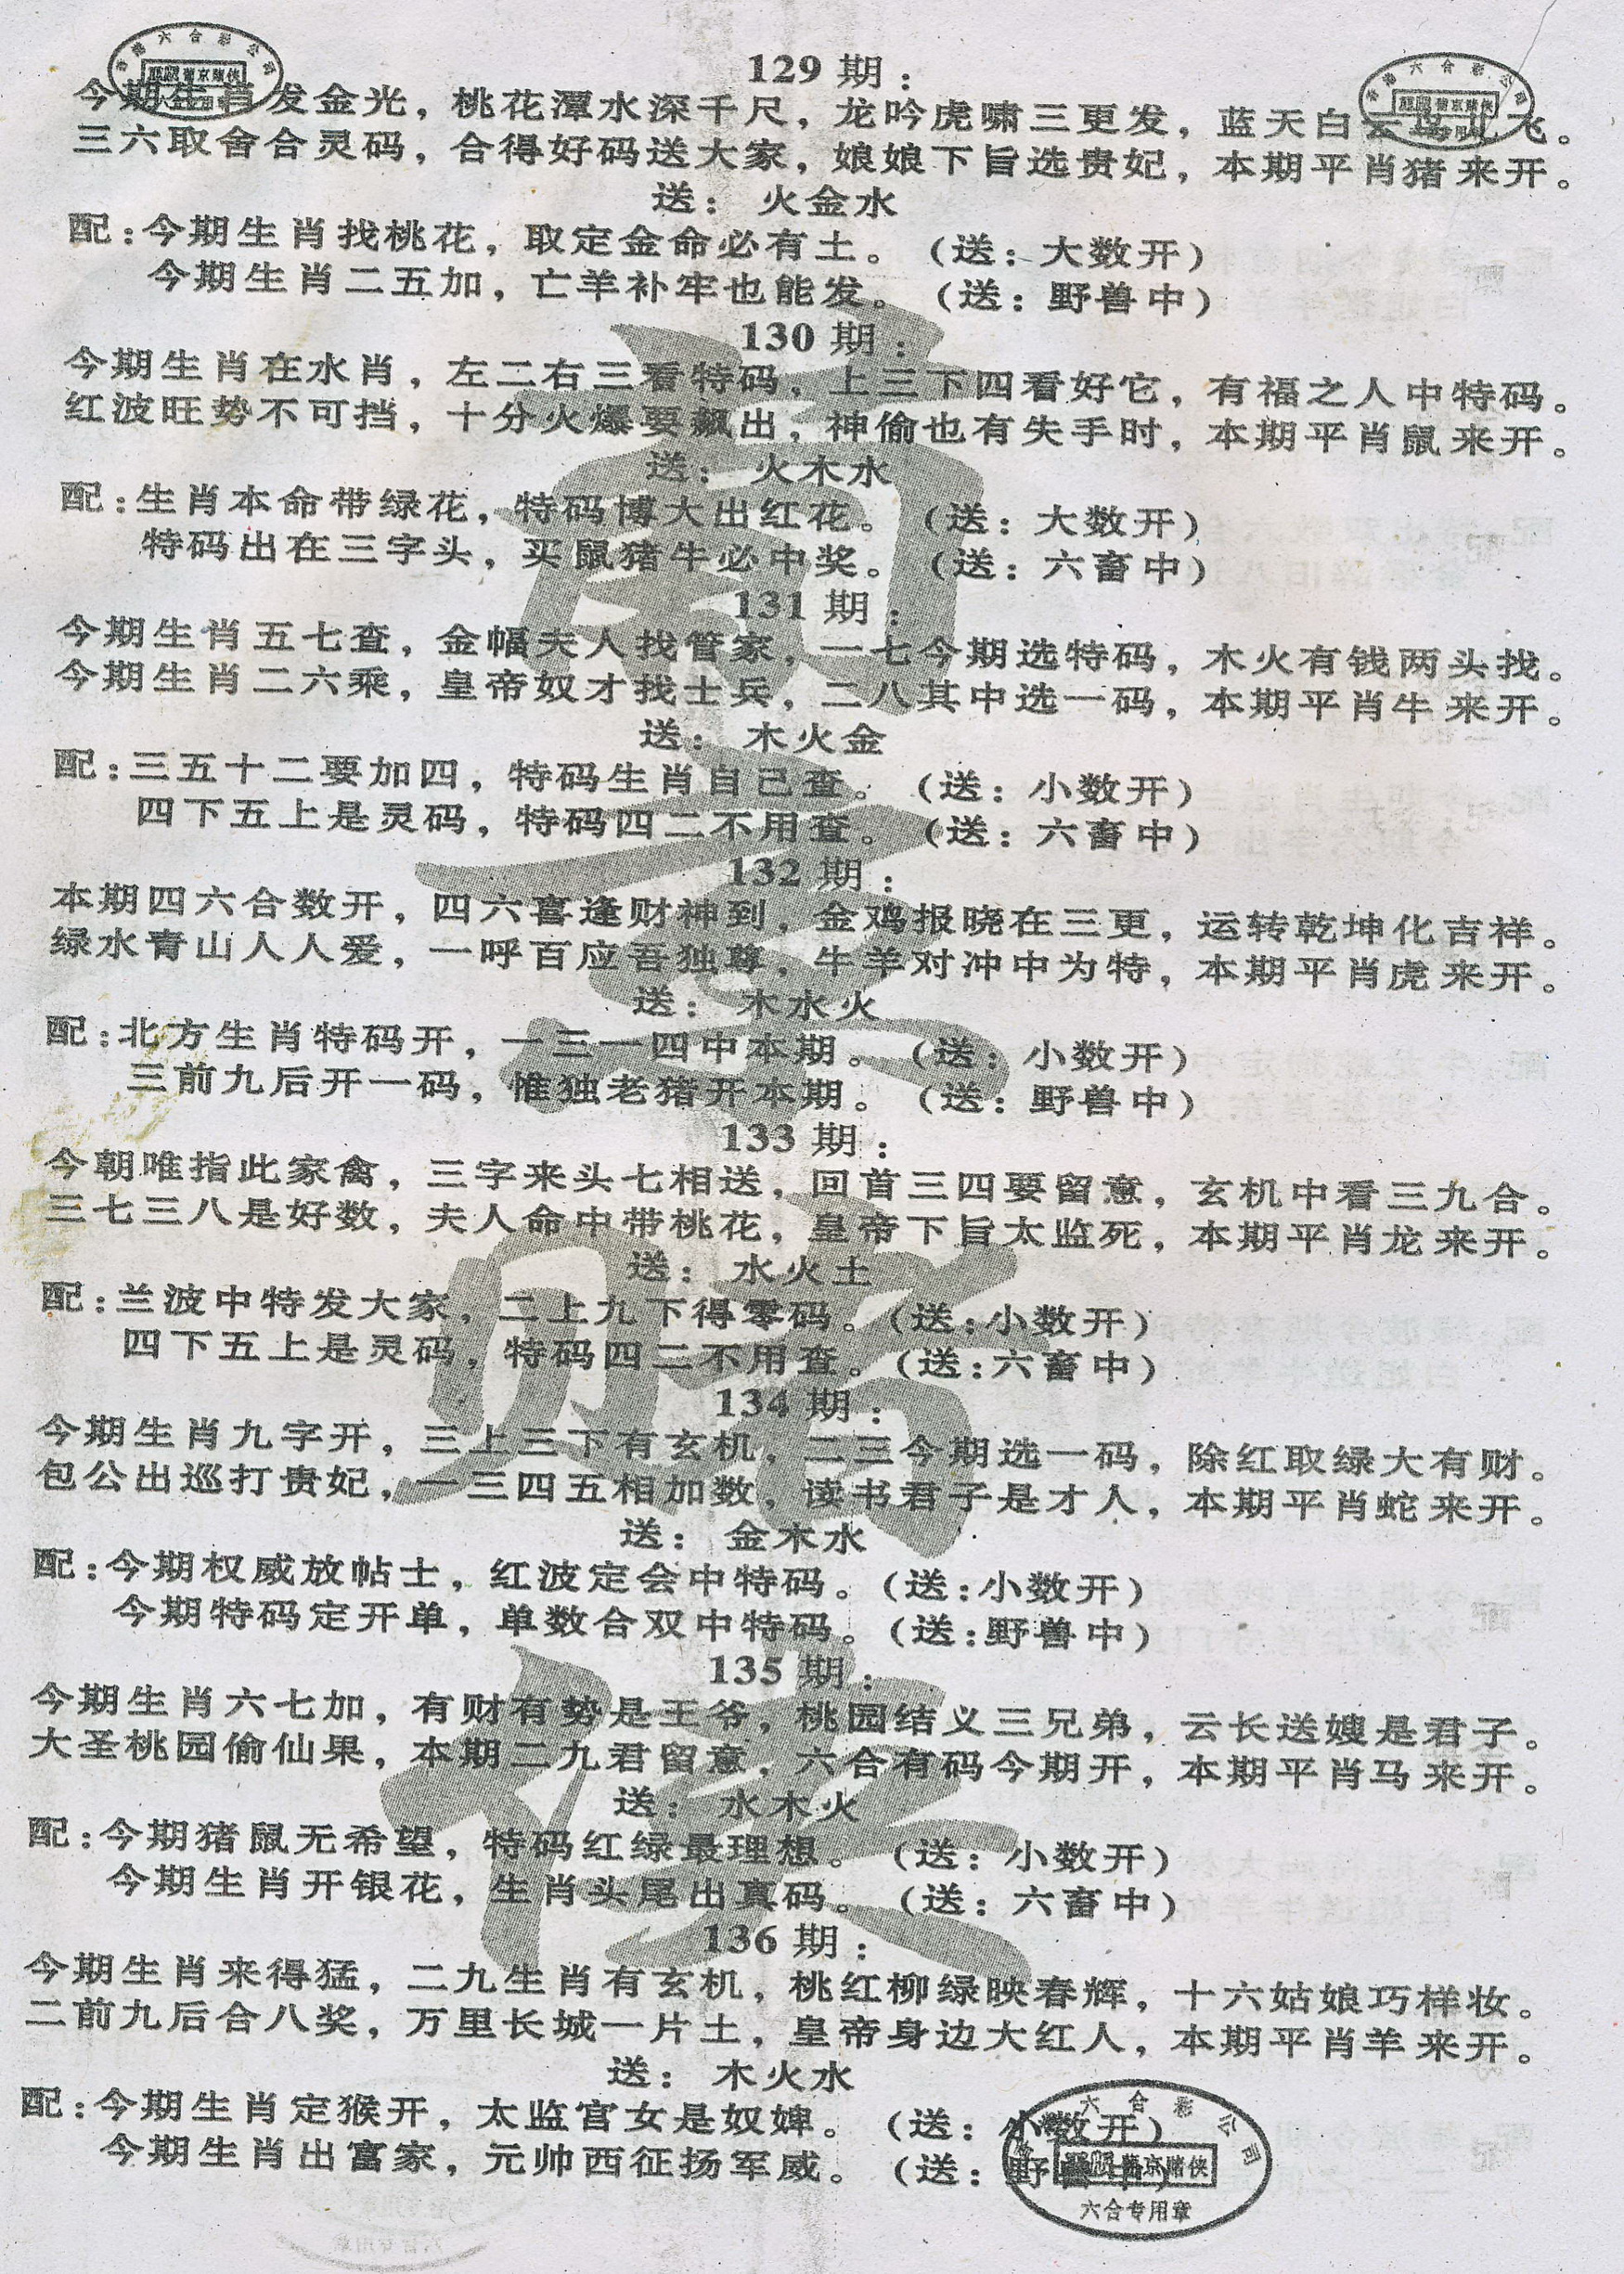 129 期：
今期生肖发金光，桃花潭水深千尺，龙吟虎啸三更发，蓝天白云鸟儿飞。
三六取舍合灵码，合得好码送大家，娘娘下旨选贵妃，本期平肖猪来开。
送： 火金水
配：今期生肖找桃花，取定金命必有土。（送：大数开）
今期生肖二五加，亡羊补牢也能发。（送：野兽中）
130 期：
今期生肖在水肖，左二右三看特码，上三下四看好它，有福之人中特码。
红波旺势不可挡，十分火爆要飙出，神偷也有失手时，本期平肖鼠来开。
送： 火木水
配：生肖本命带绿花，特码博大出红花。（送：大数开）
特码出在三字头，买鼠猪牛必中奖。（送：六畜中）
131 期：
今期生肖五七查，金幅夫人找管家，一七今期选特码，木火有钱两头找。
今期生肖二六乘，皇帝奴才找士兵，二八其中选一码，本期平肖牛来开。
送： 木火金
配：三五十二要加四，特码生肖自己查。（送：小数开）
四下五上是灵码，特码四二不用查。（送：六畜中）
132 期：
本期四六合数开，四六喜逢财神到，金鸡报晓在三更，运转乾坤化吉祥。
绿水青山人人爱，一呼百应吾独尊，牛羊对冲中为特，本期平肖虎来开。
送： 木水火
配：北方生肖特码开，一三一四中本期。（送：小数开）
三前九后开一码，惟独老猪开本期。（送：野兽中）
133 期：
今朝唯指此家禽，三字来头七相送，回首三四要留意，玄机中看三九合。
三七三八是好数，夫人命中带桃花，皇帝下旨太监死，本期平肖龙来开。
送： 水火土
配：兰波中特发大家，二上九下得零码。（送：小数开）
四下五上是灵码，特码四二不用查。（送：六畜中）
134 期：
今期生肖九字开，三上三下有玄机，二三今期选一码，除红取绿大有财。
包公出巡打贵妃，一三四五相加数，读书君子是才人，本期平肖蛇来开。
送： 金木水
配：今期权威放帖士，红波定会中特码。（送：小数开）
今期特码定开单，单数合双中特码。（送：野兽中）
135 期：
今期生肖六七加，有财有势是王爷，桃园结义三兄弟，云长送嫂是君子。
大圣桃园偷仙果，本期二九君留意，六合有码今期开，本期平肖马来开。
送： 水木火
配：今期猪鼠无希望，特码红绿最理想。（送：小数开）
今期生肖开银花，生肖头尾出真码。（送：六畜中）
136 期：
今期生肖来得猛，二九生肖有玄机，桃红柳绿映春辉，十六姑娘巧样妆。
二前九后合八奖，万里长城一片土，皇帝身边大红人，本期平肖羊来开。
送： 木火水
配：今期生肖定猴开，太监宫女是奴婢。（送：小数开）
今期生肖出富家，元帅西征扬军威。（送：野兽中）
六合专用章